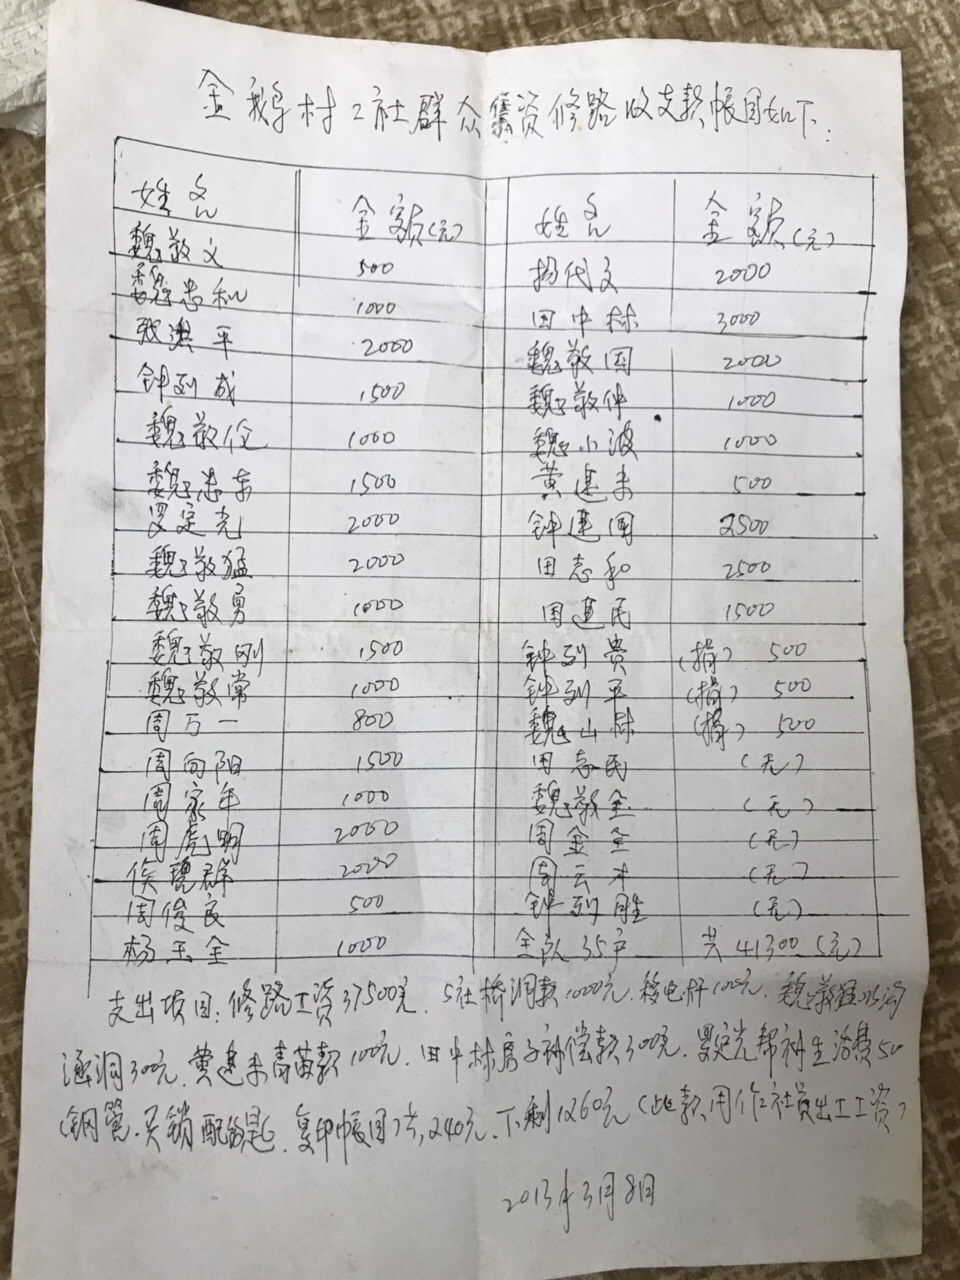 金鹅村2社群众集资修路收支款帐目如下:
姓名 金额(元) 姓名 金额(元)
魏敬文 500 杨代文 2000
魏忠和 1000 田中林 3000
张洪平 2000 魏敬国 2000
钟列成 1500 魏敬仲 1000
魏敬伦 1000 魏小波 1000
魏忠东 1500 黄建未 500
罗定光 2000 钟建国 2500
魏敬猛 2000 田志和 2500
魏敬勇 1000 田建民 1500
魏敬刚 1500 钟列贵 (捐) 500
魏敬常 1000 钟列平 (捐) 500
周万一 800 魏山林 (捐) 500
周向阳 1500 田志民 (无)
周家年 1000 魏敬全 (无)
周虎明 2000 周金全 (无)
侯 群 2000 周云才 (无)
周俊良 500 钟列胜 (无)
杨玉金 1000 全队35户 共41300(元)
支出项目: 修路工资37500元. 5社桥洞款1000元. 移电杆100元. 魏敬猛 沟
涵洞300元. 黄建未青苗款100元. 田中林房子补偿款300元. 罗定光帮补生活费50
(钢管. 买锁配钥匙. 复印帐目)共240元. 下剩1260元(此款用作社员出工工资)
2013年3月8日